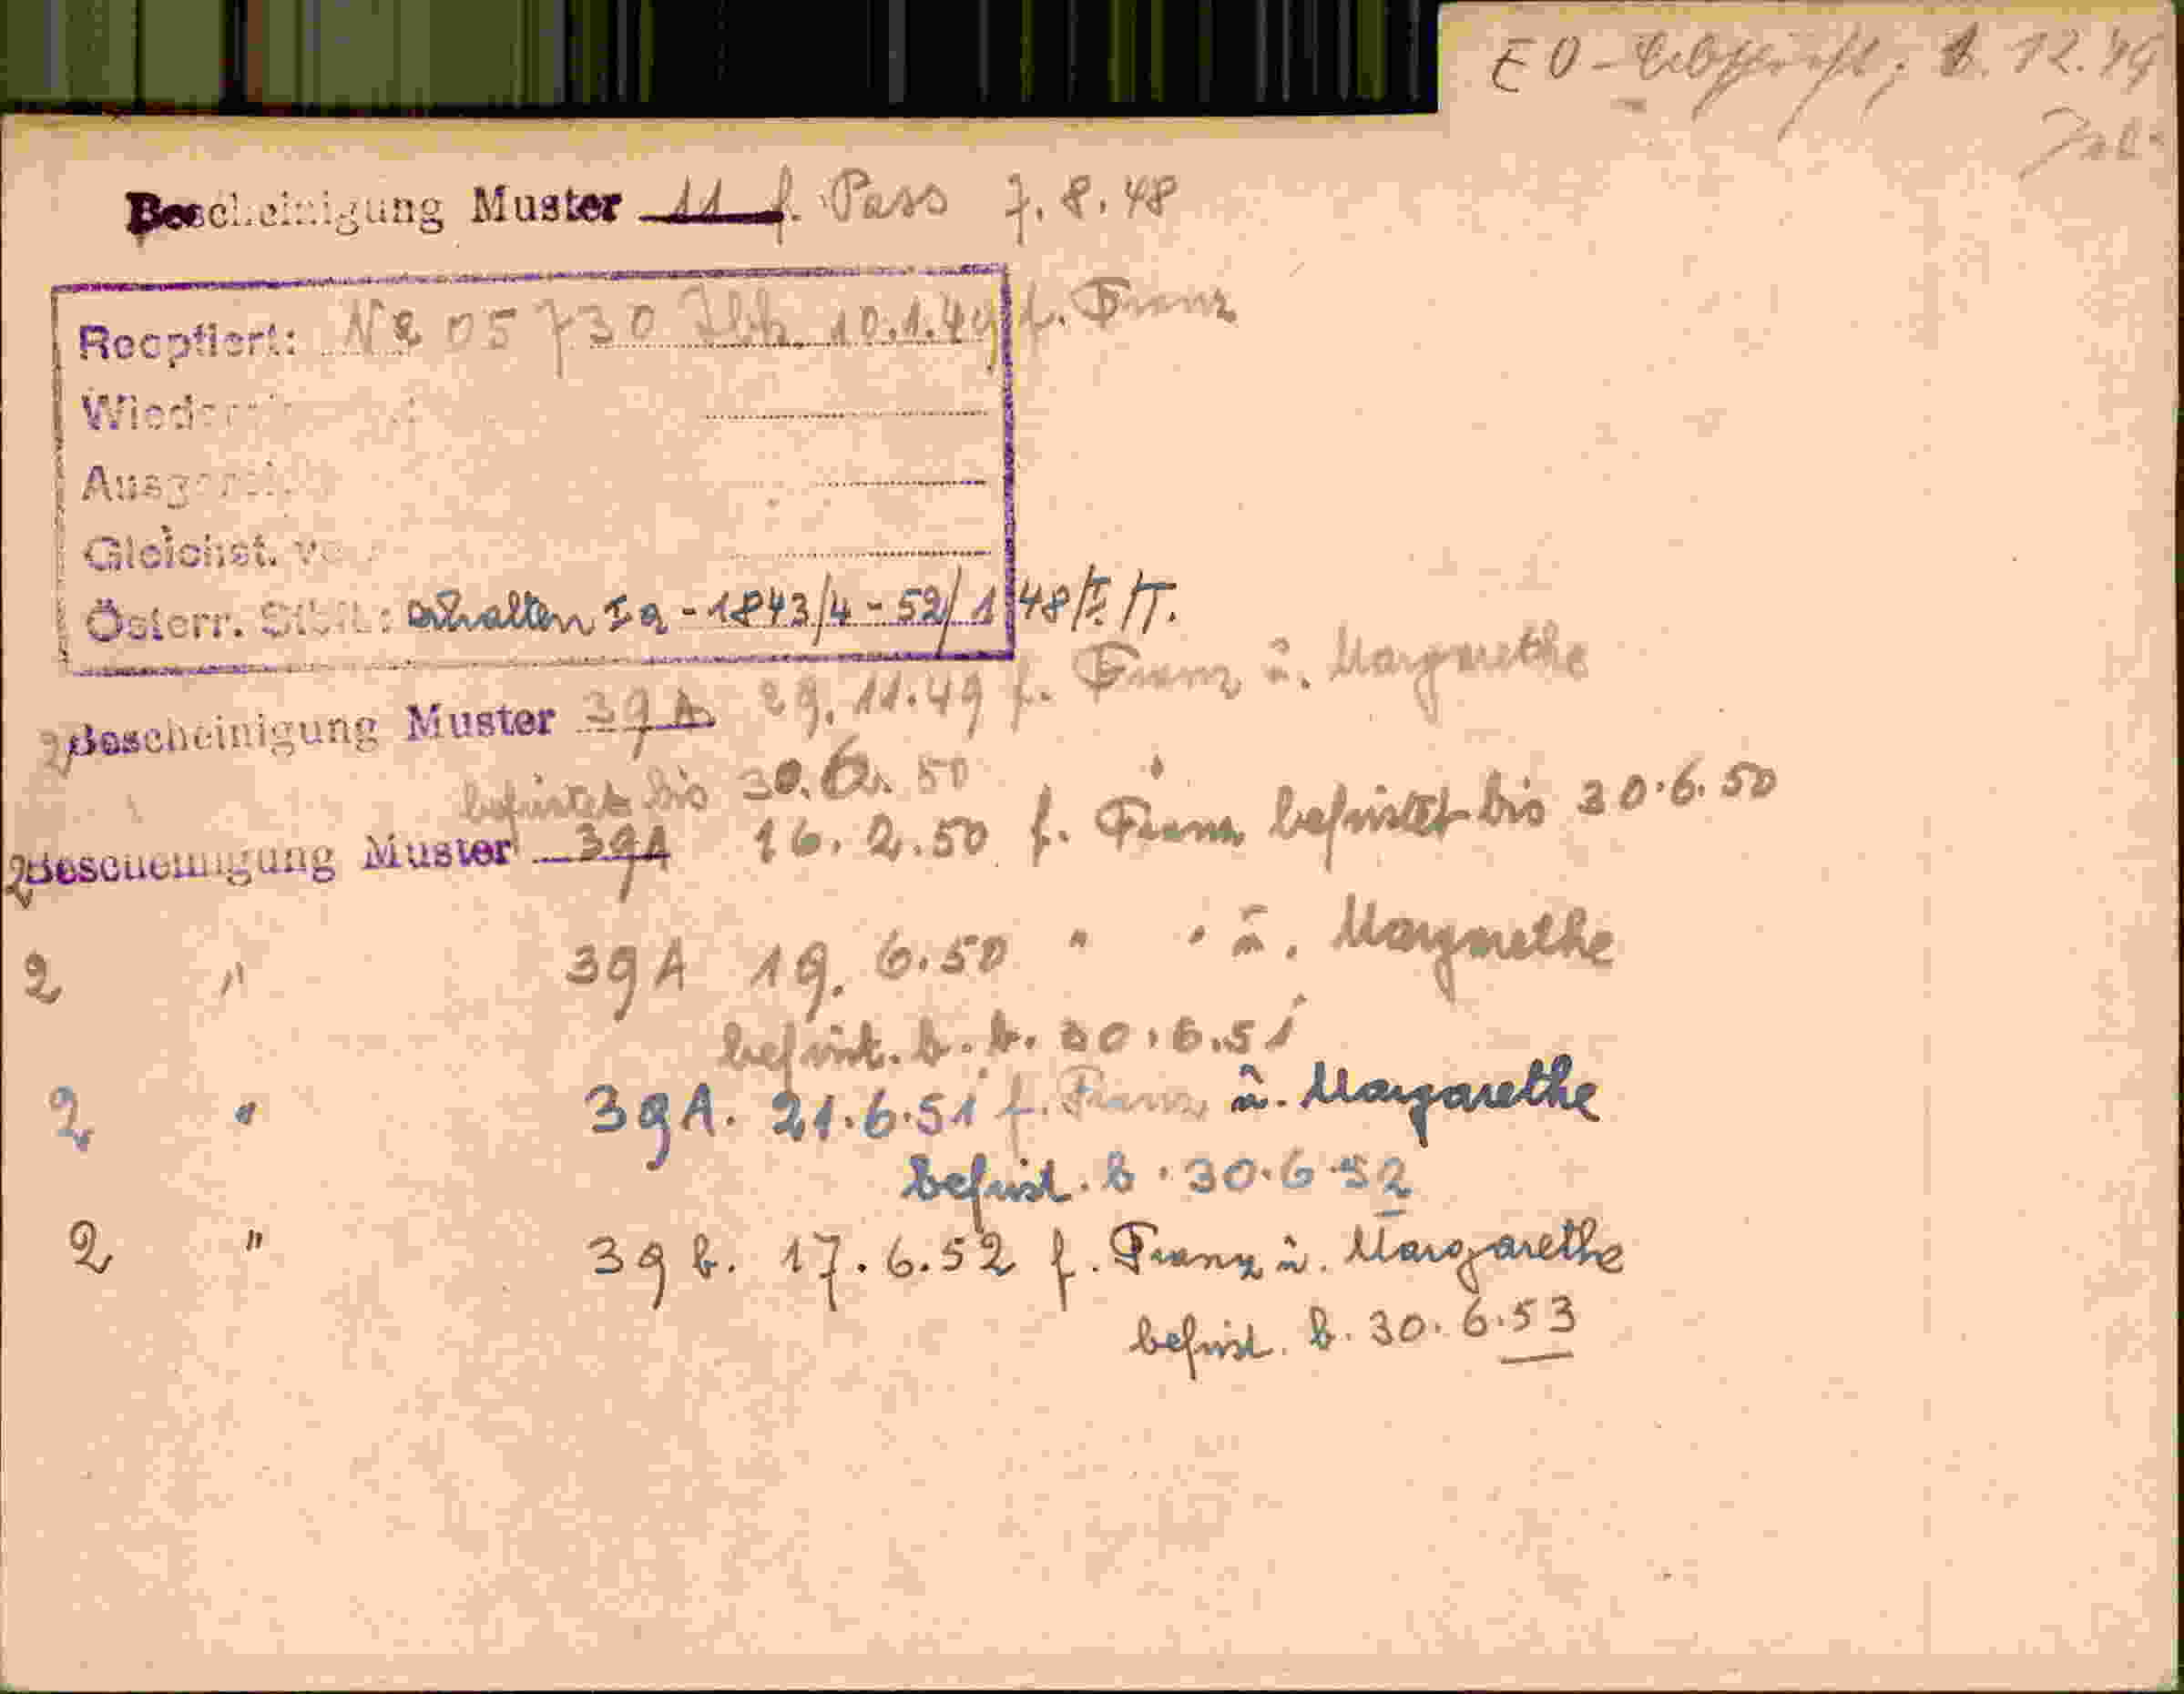 EO- 1.12.49
Bescheinigung Muster 11 f. Pass 7.8.48
Reoptiert: No 05730 10.1.49 f. Franz
Gleichst. v
Österr. Stb.: erhalten Ia - 1843/4 - 52/1 48/
2 Bescheinigung Muster 39A 29.11.49 f. Franz u. Margarethe
befristet bis 30.6.50
2 Bescheinigung Muster 39A 16.2.50 f. Franz befristet bis 30.6.50
2 " 39A 19.6.50 " " u. Margarethe
befrist. b. 30.6.51
2 " 39A. 21.6.51 f. Franz u. Margarethe
befrist. b. 30.6.52
2 " 39 b. 17.6.52 f. Franz u. Margarethe
befrist. b. 30.6.53